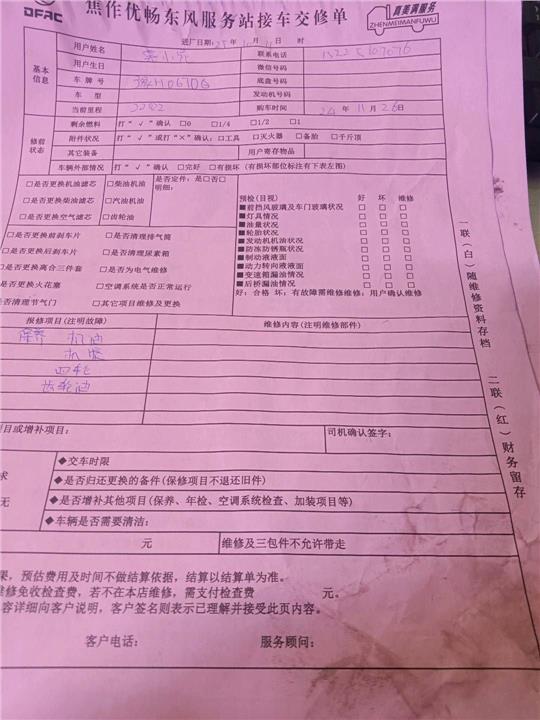 DFAC
焦作优畅东风服务站接车交修单
真美满服务
ZHENMEIMANFUWU
进厂日期：25年 月 日 时
基本信息
用户姓名
联系电话
用户生日
微信号码
车 牌 号
底盘号码
车 型
发动机号码
当前里程 2202
购车时间 24年11月26日
修前状态
剩余燃料 打"√"确认 □0 □1/4 □1/2 □1
附件状况 打"√"或打"×"确认：□工具 □灭火器 □备胎 □千斤顶
其它装备
用户寄存物品
车辆外部情况 打"√"确认 □完好 □有损坏（有损坏部位标注有下表左图）
□是否更换机油滤芯 □柴油机油 是否定件：是□否□
明细：
□是否更换柴油滤芯 □汽油机油
□是否更换空气滤芯 □齿轮油
预检(目视) 好 坏 维修
■前挡风玻璃及车门玻璃状况 □ □ □
■灯具情况 □ □ □
■油量状况 □ □ □
■轮胎状况 □ □ □
■发动机机油状况 □ □ □
■防冻防锈瓶状况 □ □ □
■制动液液面 □ □ □
■动力转向液液面 □ □ □
■变速箱漏油情况 □ □ □
■后桥漏油情况 □ □ □
好：合格 坏：有故障需维修维修：用户确认维修
□是否更换前刹车片 □是否清理排气筒
□是否更换后刹车片 □是否清理尿素箱
□是否更换离合三件套 □是否为电气维修
是否更换火花塞 □空调系统是否正常运行
是否清理节气门 □其它项目维修及更换
报修项目(注明故障) 维修内容(注明维修部件)
保养 机油
机滤
四轮
齿轮油
项目或增补项目：
司机确认签字：
◆交车时限
求
◆是否归还更换的备件(保修项目不退还旧件)
无
◆是否增补其他项目(保养、年检、空调系统检查、加装项目等)
◆车辆是否需要清洁：
元
维修及三包件不允许带走
果，预估费用及时间不做结算依据，结算以结算单为准。
维修免收检查费，若不在本店维修，需支付检查费 元。
容详细向客户说明，客户签名则表示已理解并接受此页内容。
客户电话： 服务顾问：
一联(白)随维修资料存档
二联(红)财务留存